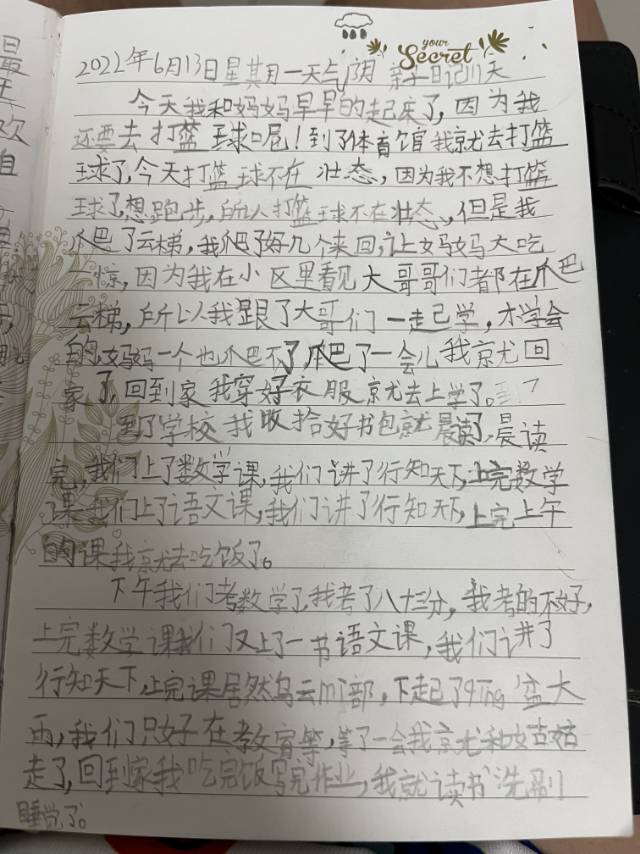 your
Secret
2022年6月13日星期一天气阴 亲子日记11天
今天我和妈妈早早的起来了,因为我
还要去打篮球呢!到了体育馆我就去打篮
球了,今天打篮球不在壮态,因为我不想打篮
球了想跑步,所以打篮球不在壮态,但是我
爬了云梯,我爬了好几个来回让妈妈大吃
一惊,因为我在小区里看见大哥哥们都在爬
云梯,所以我跟了大哥们一起己学,才学会
的妈妈一个也爬不了,爬了一会儿我就回
家了,回到家我穿好衣服就去上学了。
到了学校我收拾好书包就晨读了,晨读
完,我们上了数学课,我们讲了行知天下,上完数学
课我们上了语文课,我们讲了行知天下,上完上午
的课我就去吃饭了。
下午我们考数学了,我考了八十三分,我考的不好,
上完数学课我们又上了一书语文课,我们讲了
行知天下,上完课居然乌云mi部,下起了qing盆大
雨,我们只好在教室等,等了一会我就和姑姑
走了,回到家我吃完饭写完作业,我就读书洗刷
睡觉了。